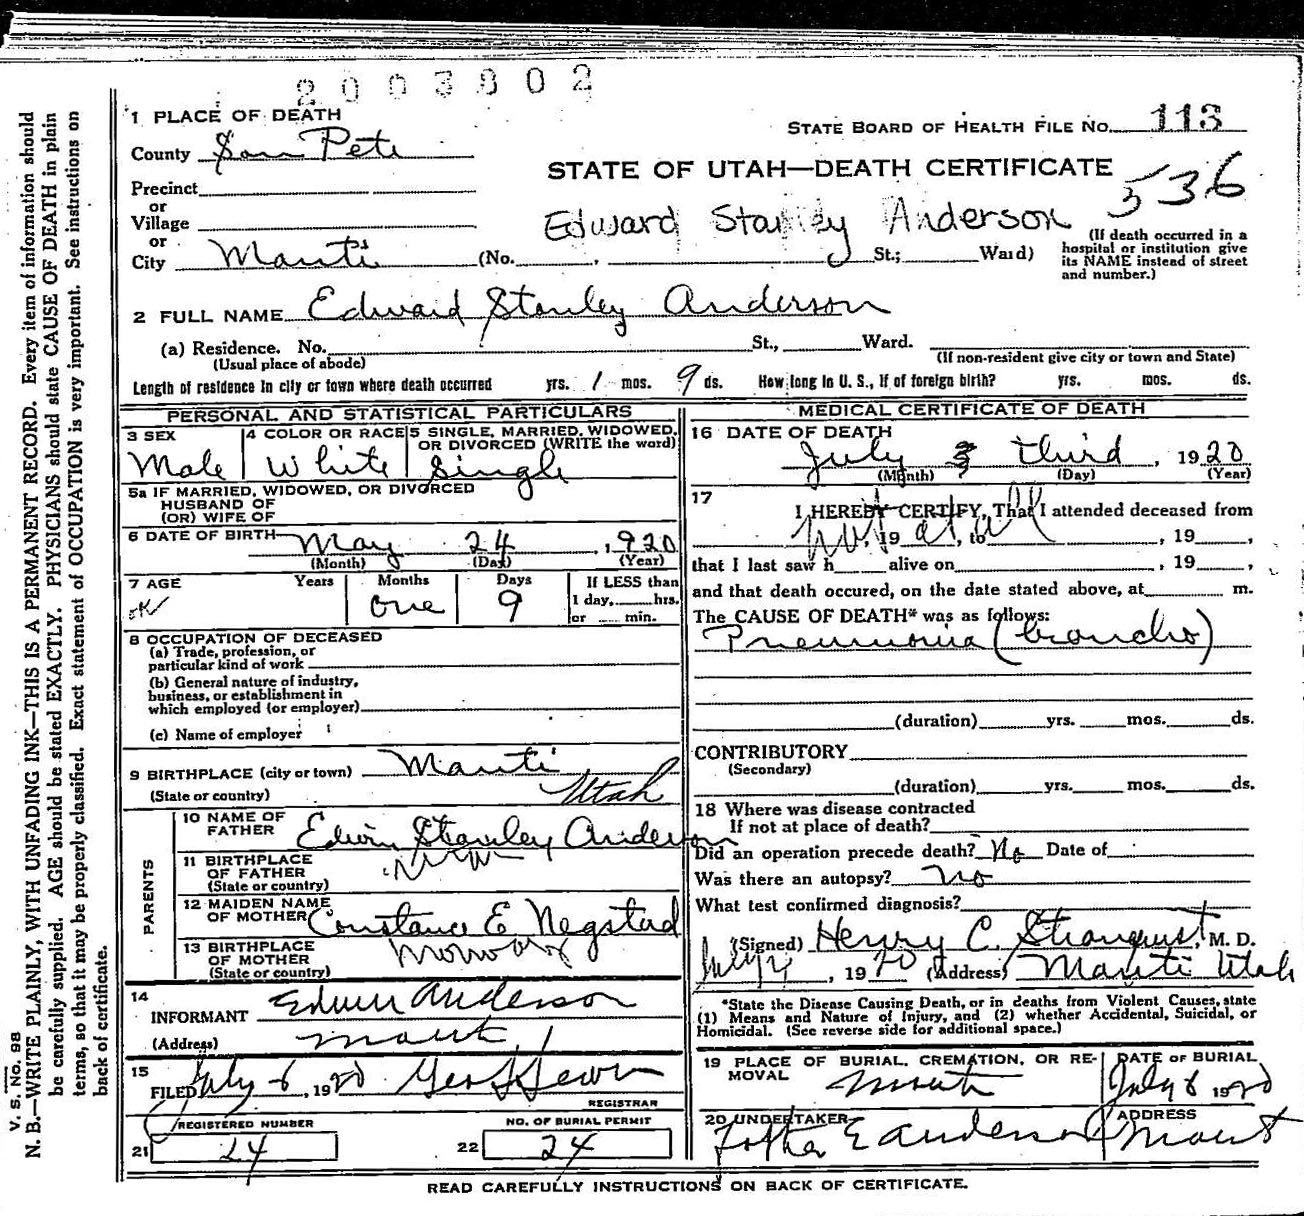 2003902
1 PLACE OF DEATH
STATE BOARD OF HEALTH FILE NO. 113
County San Pete
STATE OF UTAH—DEATH CERTIFICATE
536
Precinct
or
Village
Edward Stanley Anderson
or
City Manti (No. St.; Ward)
(If death occurred in a hospital or institution give its NAME instead of street and number.)
2 FULL NAME Edward Stanley Anderson
(a) Residence. No. St., Ward.
(Usual place of abode)
(If non-resident give city or town and State)
Length of residence in city or town where death occurred yrs. 1 mos. 9 ds. How long in U. S., if of foreign birth? yrs. mos. ds.
PERSONAL AND STATISTICAL PARTICULARS
3 SEX
Male
4 COLOR OR RACE
White
5 SINGLE, MARRIED, WIDOWED, OR DIVORCED (WRITE the word)
Single
5a IF MARRIED, WIDOWED, OR DIVORCED
HUSBAND OF
(OR) WIFE OF
6 DATE OF BIRTH May 24, 1920
(Month) (Day) (Year)
7 AGE Years Months Days If LESS than
one 9 1 day, hrs.
or min.
8 OCCUPATION OF DECEASED
(a) Trade, profession, or
particular kind of work
(b) General nature of industry,
business, or establishment in
which employed (or employer)
(c) Name of employer
9 BIRTHPLACE (city or town) Manti
(State or country) Utah
PARENTS
10 NAME OF FATHER Edwin Stanley Anderson
11 BIRTHPLACE OF FATHER
(State or country)
12 MAIDEN NAME OF MOTHER Constance E Negstad
13 BIRTHPLACE OF MOTHER
(State or country)
14
INFORMANT Edwin Anderson
(Address) Manti
15
FILED July 6, 1920
REGISTRAR
REGISTERED NUMBER
21 24
NO. OF BURIAL PERMIT
22 24
MEDICAL CERTIFICATE OF DEATH
16 DATE OF DEATH
July 3 third, 1920
(Month) (Day) (Year)
17
I HEREBY CERTIFY, That I attended deceased from
not at all
, 19 , to , 19 ,
that I last saw h alive on , 19 ,
and that death occured, on the date stated above, at m.
The CAUSE OF DEATH* was as follows:
Pneumonia (broncho)
(duration) yrs. mos. ds.
CONTRIBUTORY
(Secondary)
(duration) yrs. mos. ds.
18 Where was disease contracted
If not at place of death?
Did an operation precede death? No Date of
Was there an autopsy? no
What test confirmed diagnosis?
(Signed) Henry C. Stranquist, M. D.
July 4, 1920 (Address) Manti Utah
*State the Disease Causing Death, or in deaths from Violent Causes, state
(1) Means and Nature of Injury, and (2) whether Accidental, Suicidal, or
Homicidal. (See reverse side for additional space.)
19 PLACE OF BURIAL, CREMATION, OR REMOVAL
Manti
DATE OF BURIAL
July 6 1920
20 UNDERTAKER
E Anderson
ADDRESS
Manti
READ CAREFULLY INSTRUCTIONS ON BACK OF CERTIFICATE.
V. S. NO. 98
N. B.—WRITE PLAINLY, WITH UNFADING INK—THIS IS A PERMANENT RECORD. Every item of information should
be carefully supplied. AGE should be stated EXACTLY. PHYSICIANS should state CAUSE OF DEATH in plain
terms, so that it may be properly classified. Exact statement of OCCUPATION is very important. See instructions on
back of certificate.